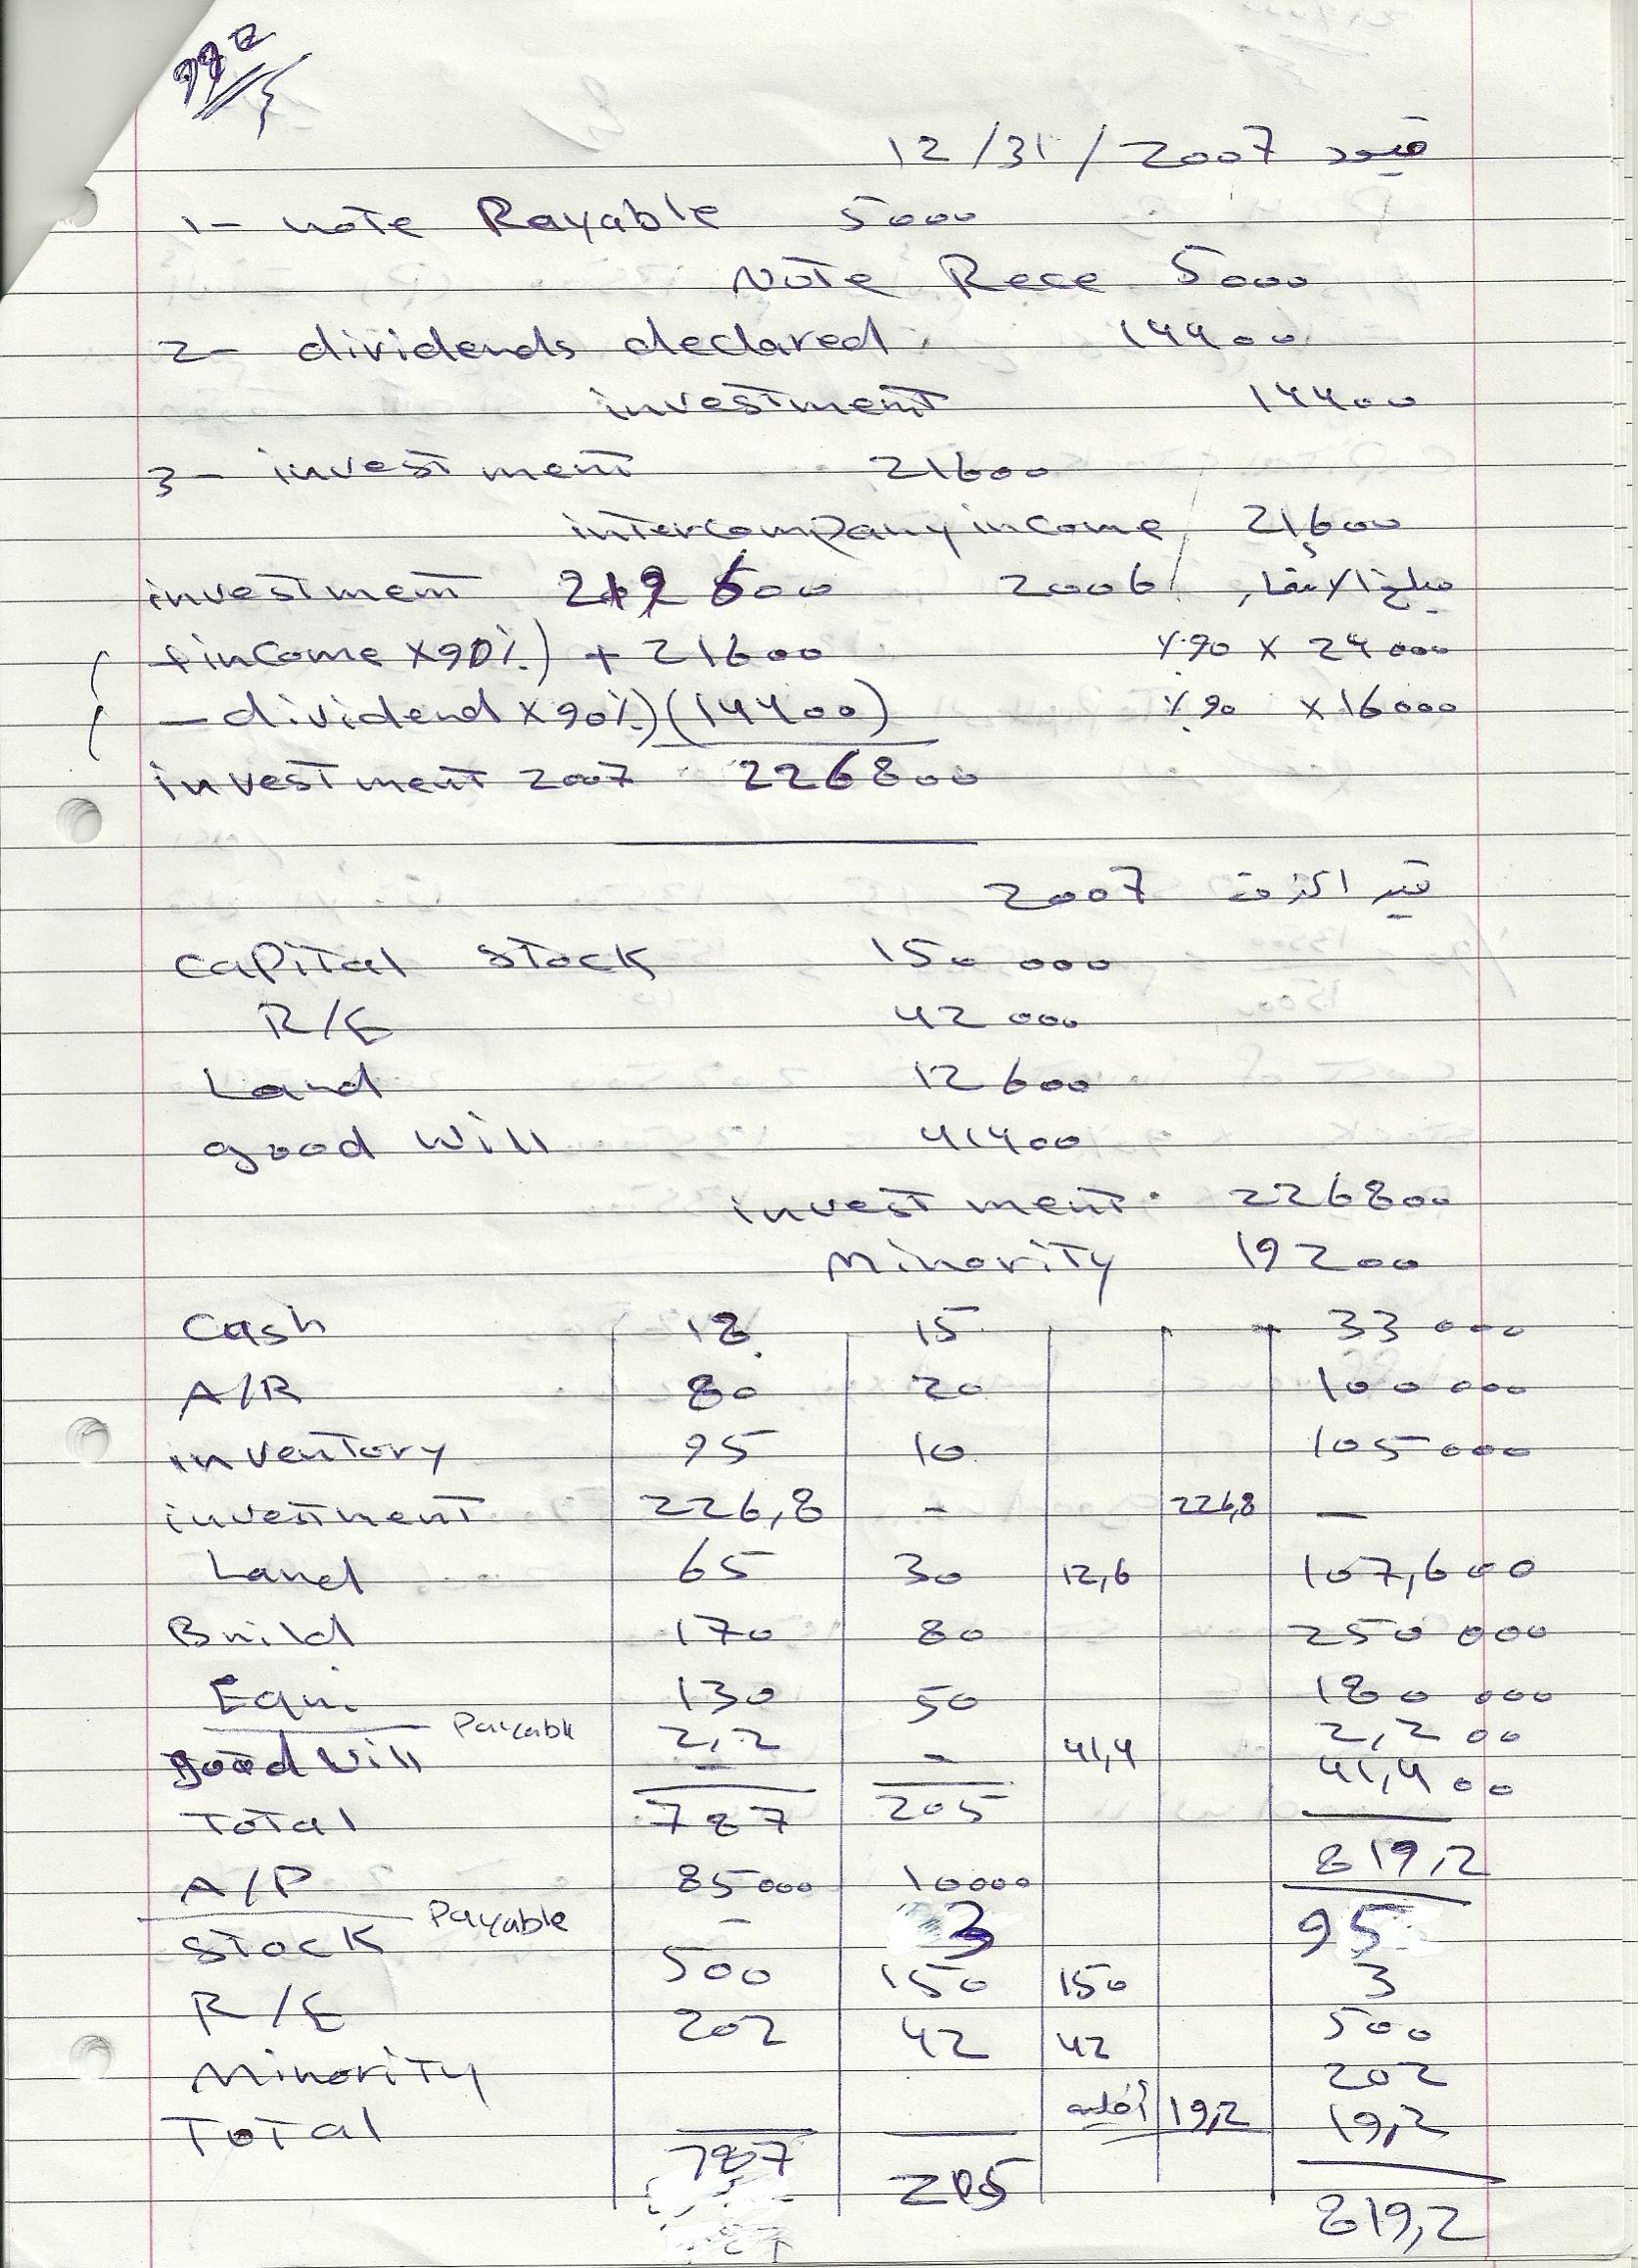 قيود 12/31/2007
1- note Rayable 5000
Note Rece 5000
2- dividends declared 14400
investment 14400
3- investment 21600
intercompany income 21600
investment 219 600 2006 مبلغ الاستثمار
+ income x 90%) + 21600 %90 x 24000
- dividend x 90%) (14400) %90 x 16000
investment 2007 226800
قيد 2007
capital stock 150 000
R/E 42 000
Land 12 600
good will 41400
investment 226800
Minority 19200
Cash 18 15 33 000
A/R 80 20 100 000
inventory 95 10 105 000
investment 226,8 - 226,8 -
Land 65 30 12,6 107,600
Build 170 80 250 000
Equi. 130 50 180 000
Payable 2,2 - 2,200
good will - 41,4 41,400
Total 787 205 819,2
A/P 85000 10000 95
Payable - 3 3
Stock 500 150 150 500
R/E 202 42 42 202
Minority 19,2 19,2
Total 787 205 819,2